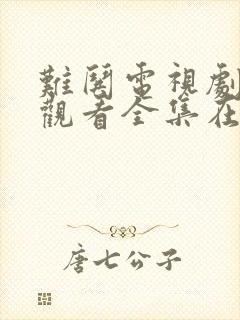 難哄電視劇
觀看全集在
唐七公子